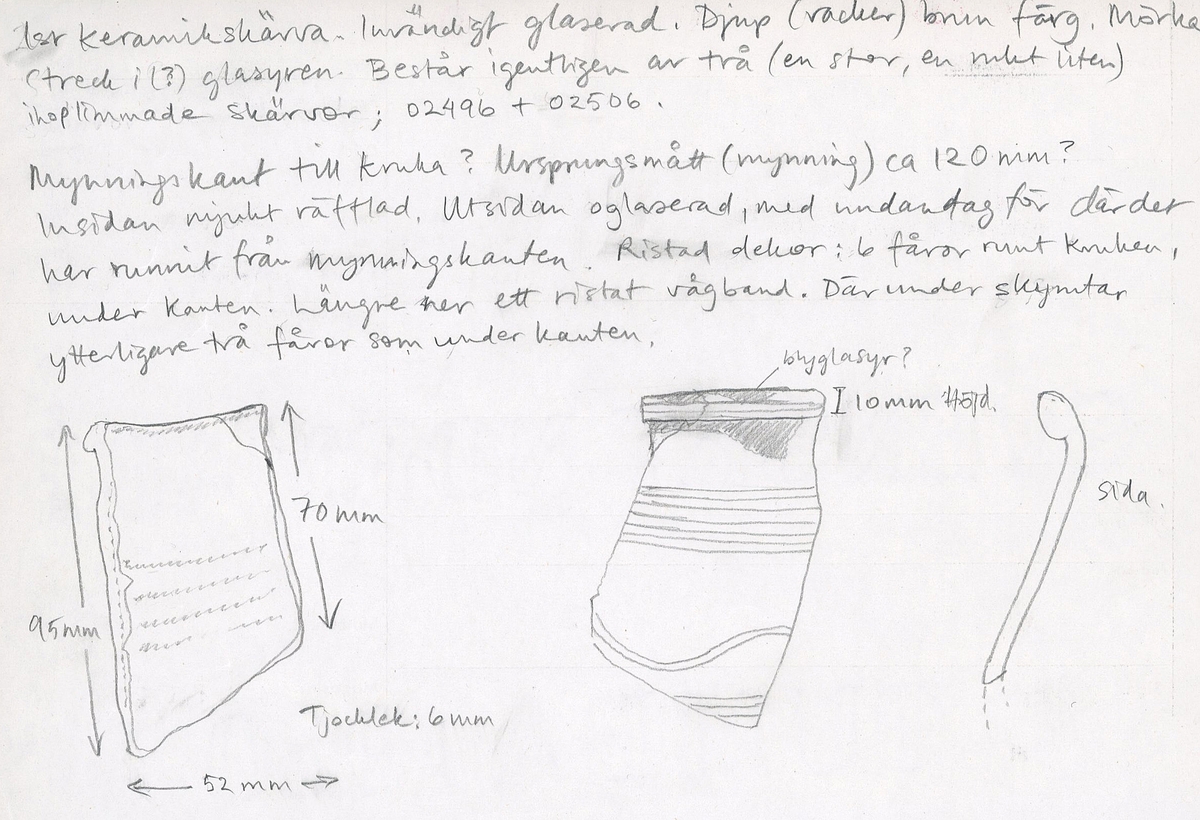 1st keramikskärva. Invändigt glaserad. Djup (vacker) brun färg. Mörka
streck i(?) glasyren. Består igentligen av två (en stor, en mkt liten)
ihoplimmade skärvor; 02496 + 02506.
Mynningskant till kruka? Ursprungsmått (mynning) ca 120 mm?
Insidan mjukt räfflad. Utsidan oglaserad, med undantag för där det
har runnit från mynningskanten. Ristad dekor: 6 fåror runt krukan,
under kanten. Längre ner ett ristat vågband. Därunder skymtar
ytterligare två fåror som under kanten.
blyglasyr?
10mm Höjd.
70mm
sida.
95mm
Tjocklek: 6mm
52mm